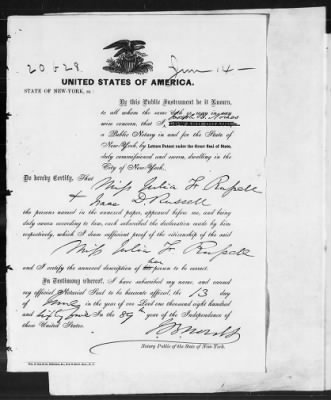 20628
June 14
UNITED STATES OF AMERICA.
STATE OF NEW-YORK, ss:
By this Public Instrument be it Known,
to all whom the same may in any
wise concern, that I,
a Public Notary in and for the State of
New-York, by Letters Patent under the Great Seal of State,
duly commissioned and sworn, dwelling in the
City of New-York.
Do hereby Certify, That
Miss Julia F Russell
+ Isaac D Russell
the persons named in the annexed paper, appeared before me, and being
duly sworn according to law, each subscribed the declaration made by him
respectively, which I deem sufficient proof of the citizenship of the said
Miss Julia F Russell
her
and I certify the annexed description of person to be correct.
In Testimony whereof, I have subscribed my name, and caused
my official Notarial Seal to be hereunto affixed, the 13 day
of June in the year of our Lord one thousand eight hundred
and sixty five In the 89th year of the Independence of
these United States.
Notary Public of the State of New-York.